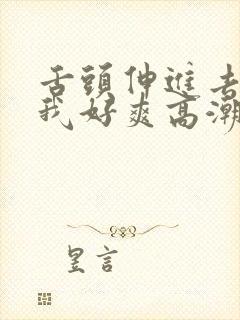 舌頭伸進去
我好爽高潮
昱言